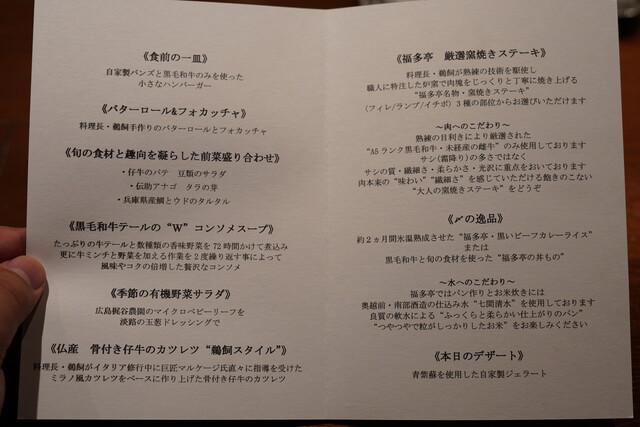 《食前の一皿》
自家製バンズと黒毛和牛のみを使った
小さなハンバーガー
《バターロール&フォカッチャ》
料理長・鵜飼手作りのバターロールとフォカッチャ
《旬の食材と趣向を凝らした前菜盛り合わせ》
・仔牛のパテ 豆類のサラダ
・伝助アナゴ タラの芽
・兵庫県産鯛とウドのタルタル
《黒毛和牛テールの“W”コンソメスープ》
たっぷりの牛テールと数種類の香味野菜を72時間かけて煮込み
更に牛ミンチと野菜を加える作業を2度繰り返す事によって
風味やコクの倍増した贅沢なコンソメ
《季節の有機野菜サラダ》
広島梶谷農園のマイクロベビーリーフを
淡路の玉葱ドレッシングで
《仏産 骨付き仔牛のカツレツ“鵜飼スタイル”》
料理長・鵜飼がイタリア修行中に巨匠マルケージ氏直々に指導を受けた
ミラノ風カツレツをベースに作り上げた骨付き仔牛のカツレツ
《福多亭 厳選窯焼きステーキ》
料理長・鵜飼が熟練の技術を駆使し
職人に特注した炉窯で肉塊をじっくりと丁寧に焼き上げる
“福多亭名物・窯焼きステーキ”
(フィレ/ランプ/イチボ)3種の部位からお選びいただけます
～肉へのこだわり～
熟練の目利きにより厳選された
“A5ランク黒毛和牛・未経産の雌牛”のみ使用しております
サシ(霜降り)の多さではなく
サシの質・繊細さ・柔らかさ・光沢に重点をおいております
肉本来の“味わい”“繊細さ”を感じていただける飽きのこない
“大人の窯焼きステーキ”をどうぞ
《〆の逸品》
約2ヵ月間氷温熟成させた“福多亭・黒いビーフカレーライス”
または
黒毛和牛と旬の食材を使った“福多亭の丼もの”
～水へのこだわり～
福多亭ではパン作りとお米炊きには
奥越前・南部酒造の仕込み水“七間清水”を使用しております
良質の軟水による“ふっくらと柔らかい仕上がりのパン”
“つやつやで粒がしっかりしたお米”をお楽しみください
《本日のデザート》
青紫蘇を使用した自家製ジェラート